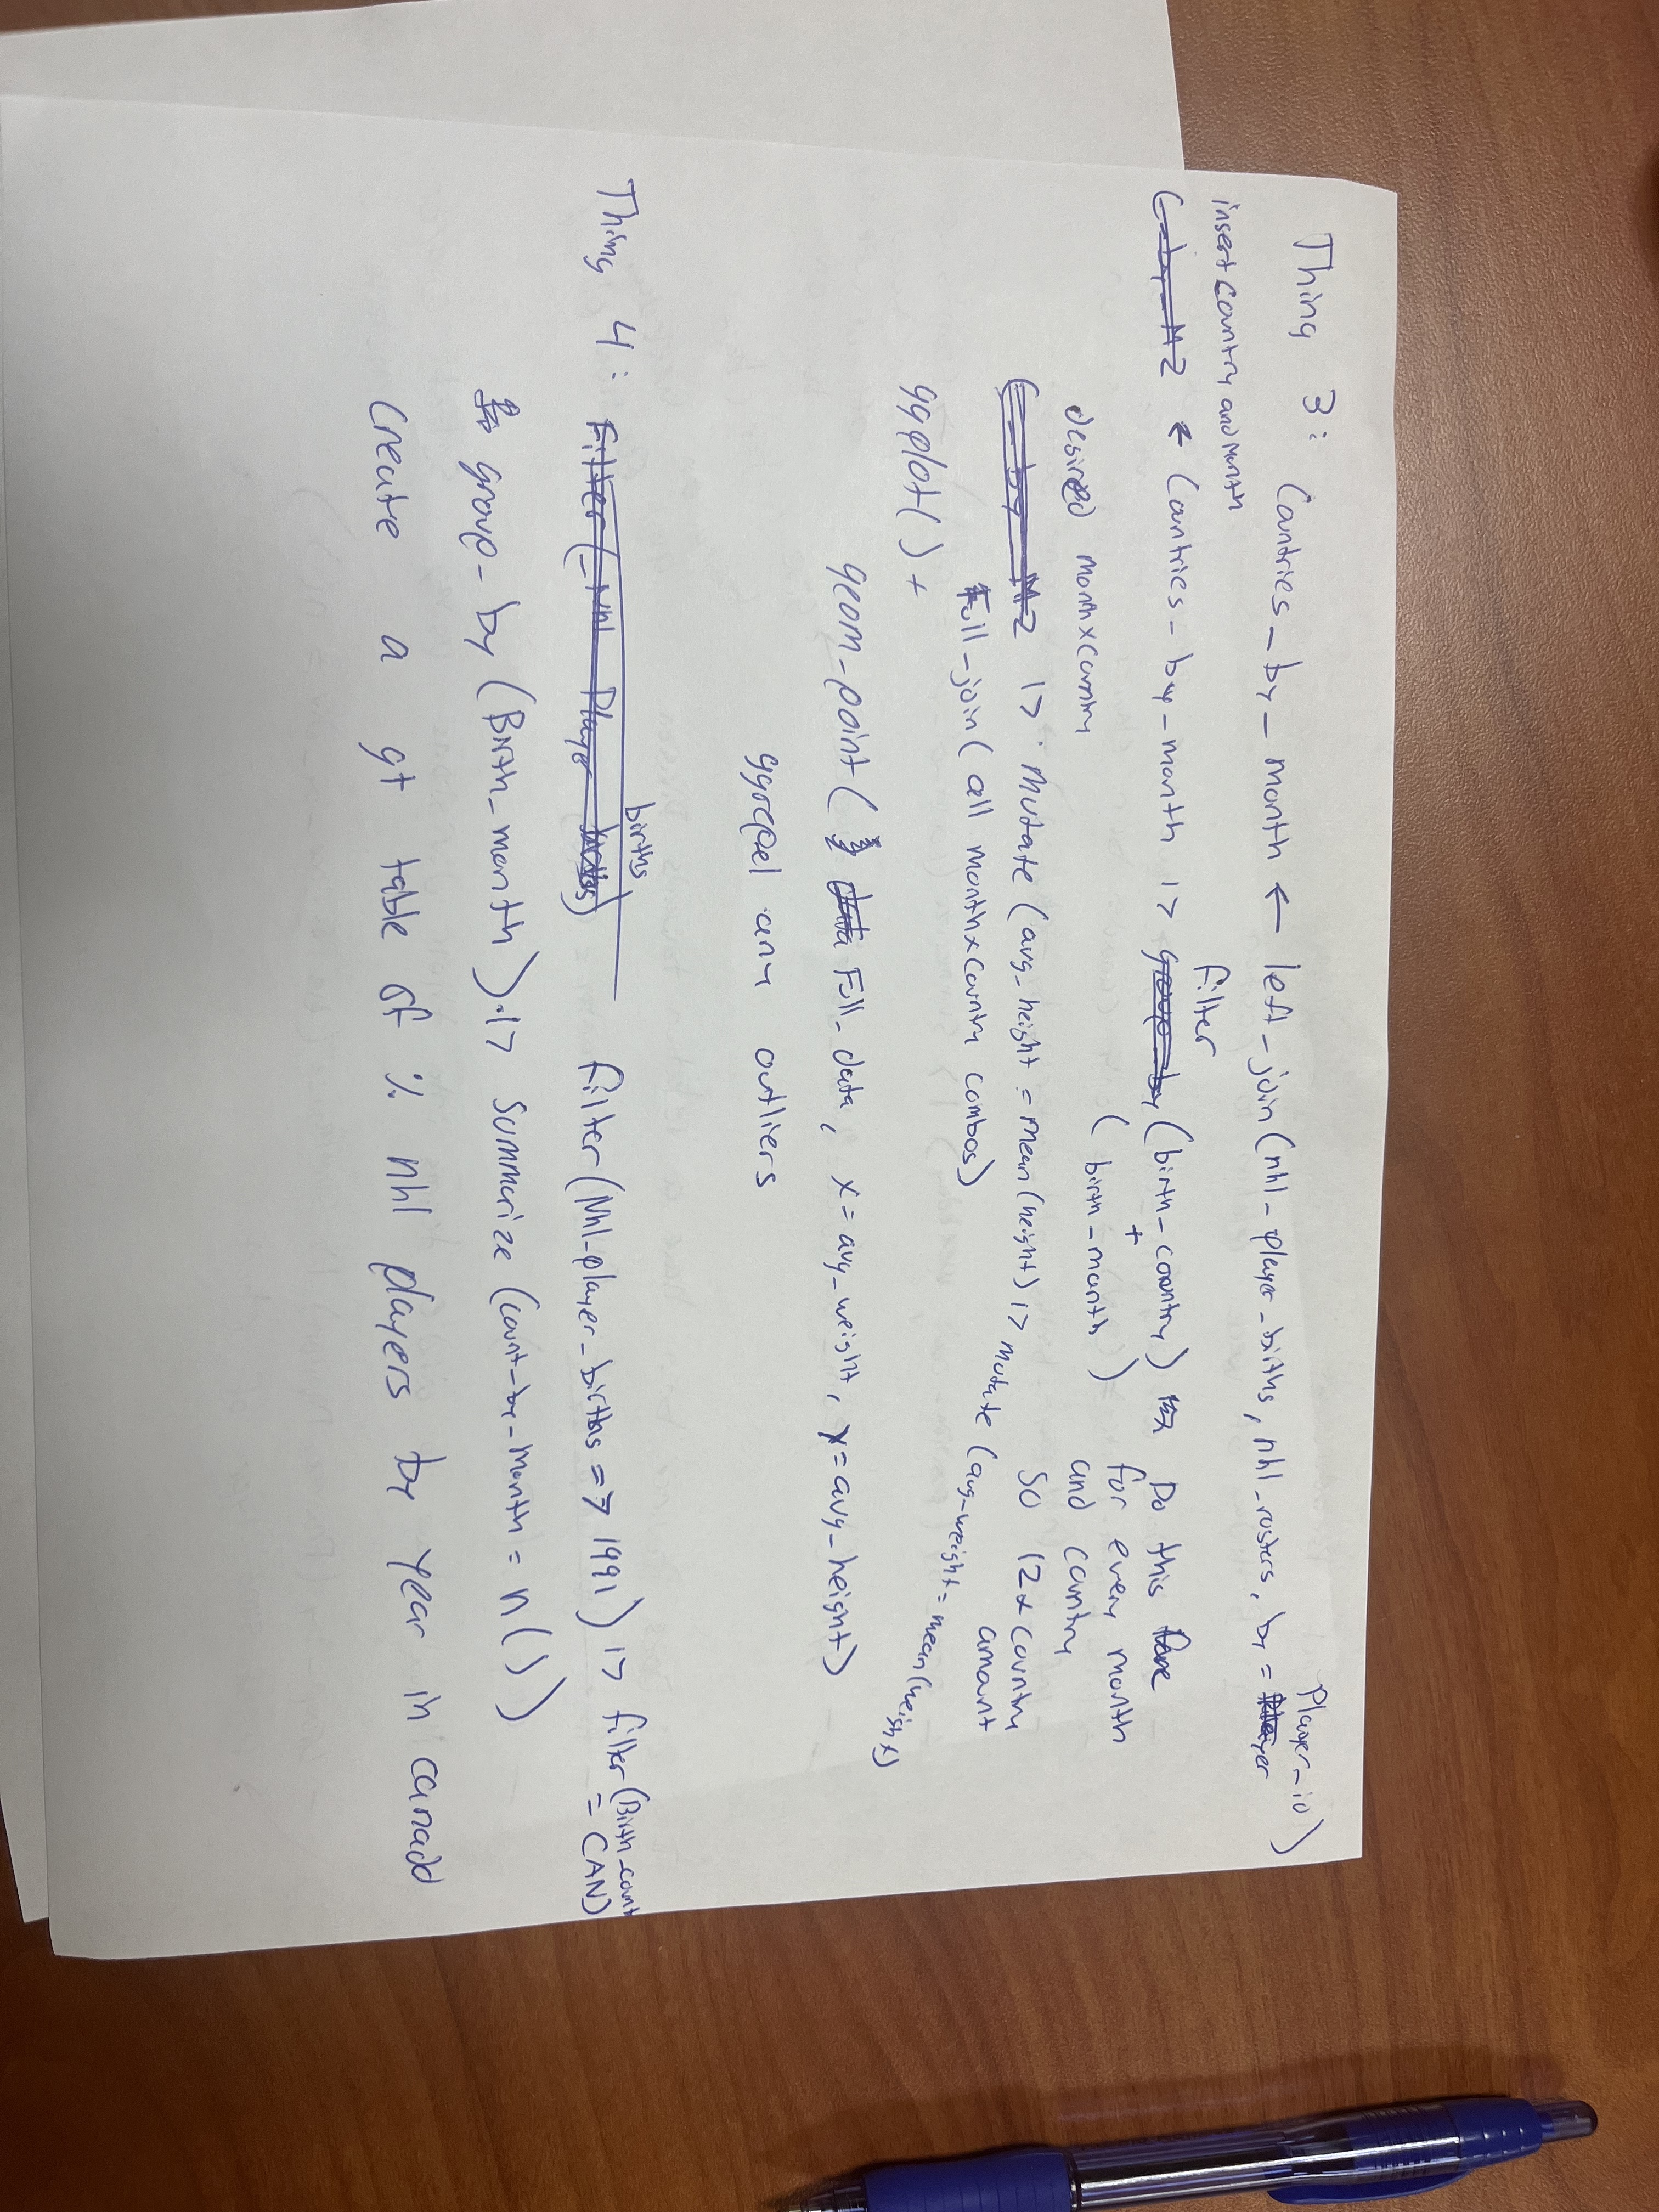 Thing 3: Countries_by_month ← left_join(nhl_player_births, nhl_rosters, by = player_id)
insert country and Month
C_by_M2 ← Countries_by_month |> filter (birth_country) Do this for
+ (birth_month) for every month
and country
desired month x country
C_by_M2 |> mutate (avg_height = mean(height) |> mutate (avg_weight = mean(weight)
So 12 x country
amount
Full_join( all month x country combos)
ggplot() +
geom_point( Full_data, x = avg_weight, y = avg_height)
ggrepel any outliers
Thing 4: Filter( Nhl Player births) filter (Nhl_player_births => 1991) |> filter (Birth_count
= CAN)
group_by (Birth_month) |> summarize (count_by_month = n())
Create a gt table of % nhl players by year in canada